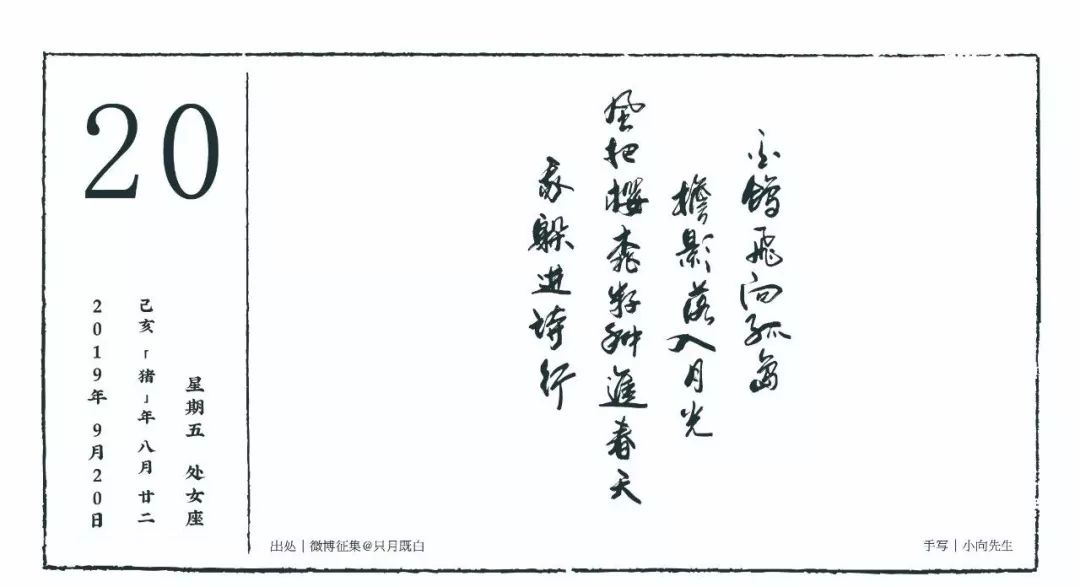 20
星期五 处女座
己亥「猪」年 八月廿二
2019年 9月20日
白鸽飞向孤岛
檐影落入月光
風把櫻桃籽种進春天
我躲进诗行
出处|微博征集@只月既白
手写|小向先生